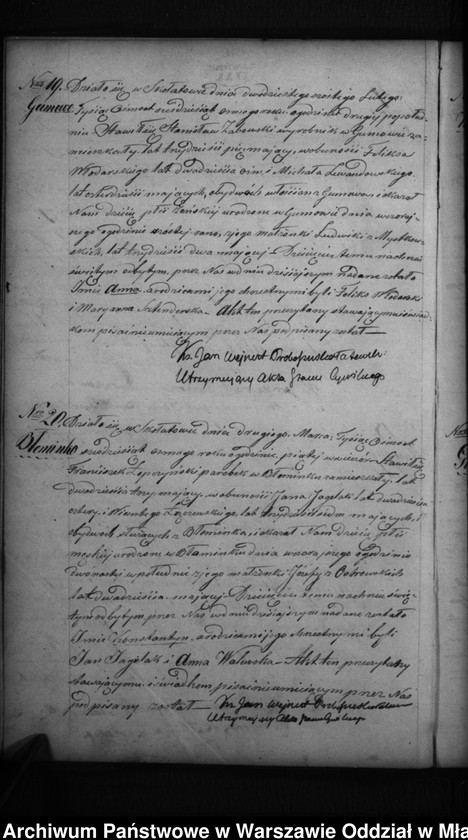 Nro 19. Działo się w Szkatowie dnia dwudziestego szóstego Lutego
Gumowo Tysiąc Ośmset sześdziesiąt ósmego roku o godzinie drugiej popołud
niu Stawił się Stanisław wyrobnik w Gumowie za
mieszkały lat trzydzieści pięć mający, w obecności Feliksa
Włodarskiego lat dwadzieścia ośm i Michała Lewandowskiego
lat czterdzieści mających, obydwóch włościan z Gumowa, i okazał
Nam dziecię płci żeńskiej urodzone w Gumowie dnia wczoraj
szego o godzinie szóstej rano, z jego małżonki Ludwiki z
lat trzydzieści dwa mającej – Dziecięciu temu na chrzcie
świętym odbytym, przez Nas w dniu dzisiejszym nadane zostało
Imie Anna, a rodzicami jego chrzestnymi byli Feliks Włodarski
i Maryanna – Akt ten przeczytany stawającemu i świad
kom pisać nieumiejącym przez Nas podpisany został –
Ks. Jan Wejnert
Utrzymujący Akta Stanu Cywilnego
Nro 20. Działo się w dnia drugiego Marca, Tysiąc Ośmset
Dłeminko sześdziesiąt ósmego roku o godzinie piątej wieczór Stawił się
Franciszek parobek w zamieszkały, lat
dwadzieścia trzy mający, w obecności Jana Jagielak lat dwadzieścia
cztery, i lat trzydzieści mających,
obydwóch służących z i okazał Nam dziecię płci
męzkiej urodzone w dnia wczorajszego o godzinie
dwunastej w południe z jego małżonki Józefy z Ostrowskich
lat dwadzieścia mającej – Dziecięciu temu na chrzcie świę
tym odbytym przez Nas w dniu dzisiejszym nadane zostało
Imie Konstantyn, a rodzicami jego chrzestnymi byli
Jan Jagielak i Anna – Akt ten przeczytany
stawającemu i świadkom pisać nieumiejącym przez Nas
podpisany został – Ks. Jan Wejnert
Utrzymujący Akta Stanu Cywilnego
Archiwum Państwowe w Warszawie Oddział w Mła